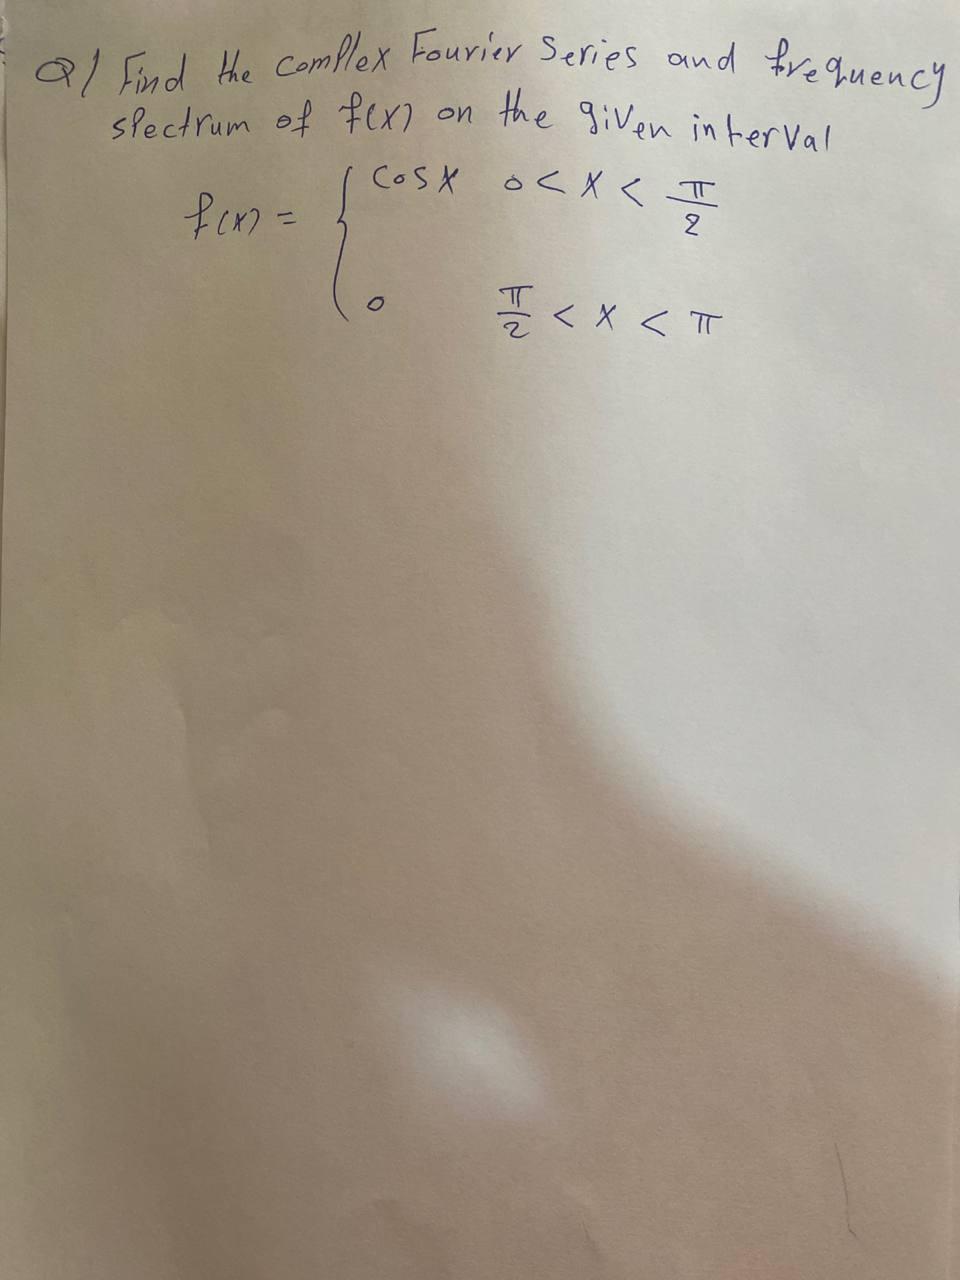 Q1 Find the complex Fourier Series and frequency
spectrum of f(x) on the given interval
f(x) = { cos x 0 < x < π/2
0 π/2 < x < π